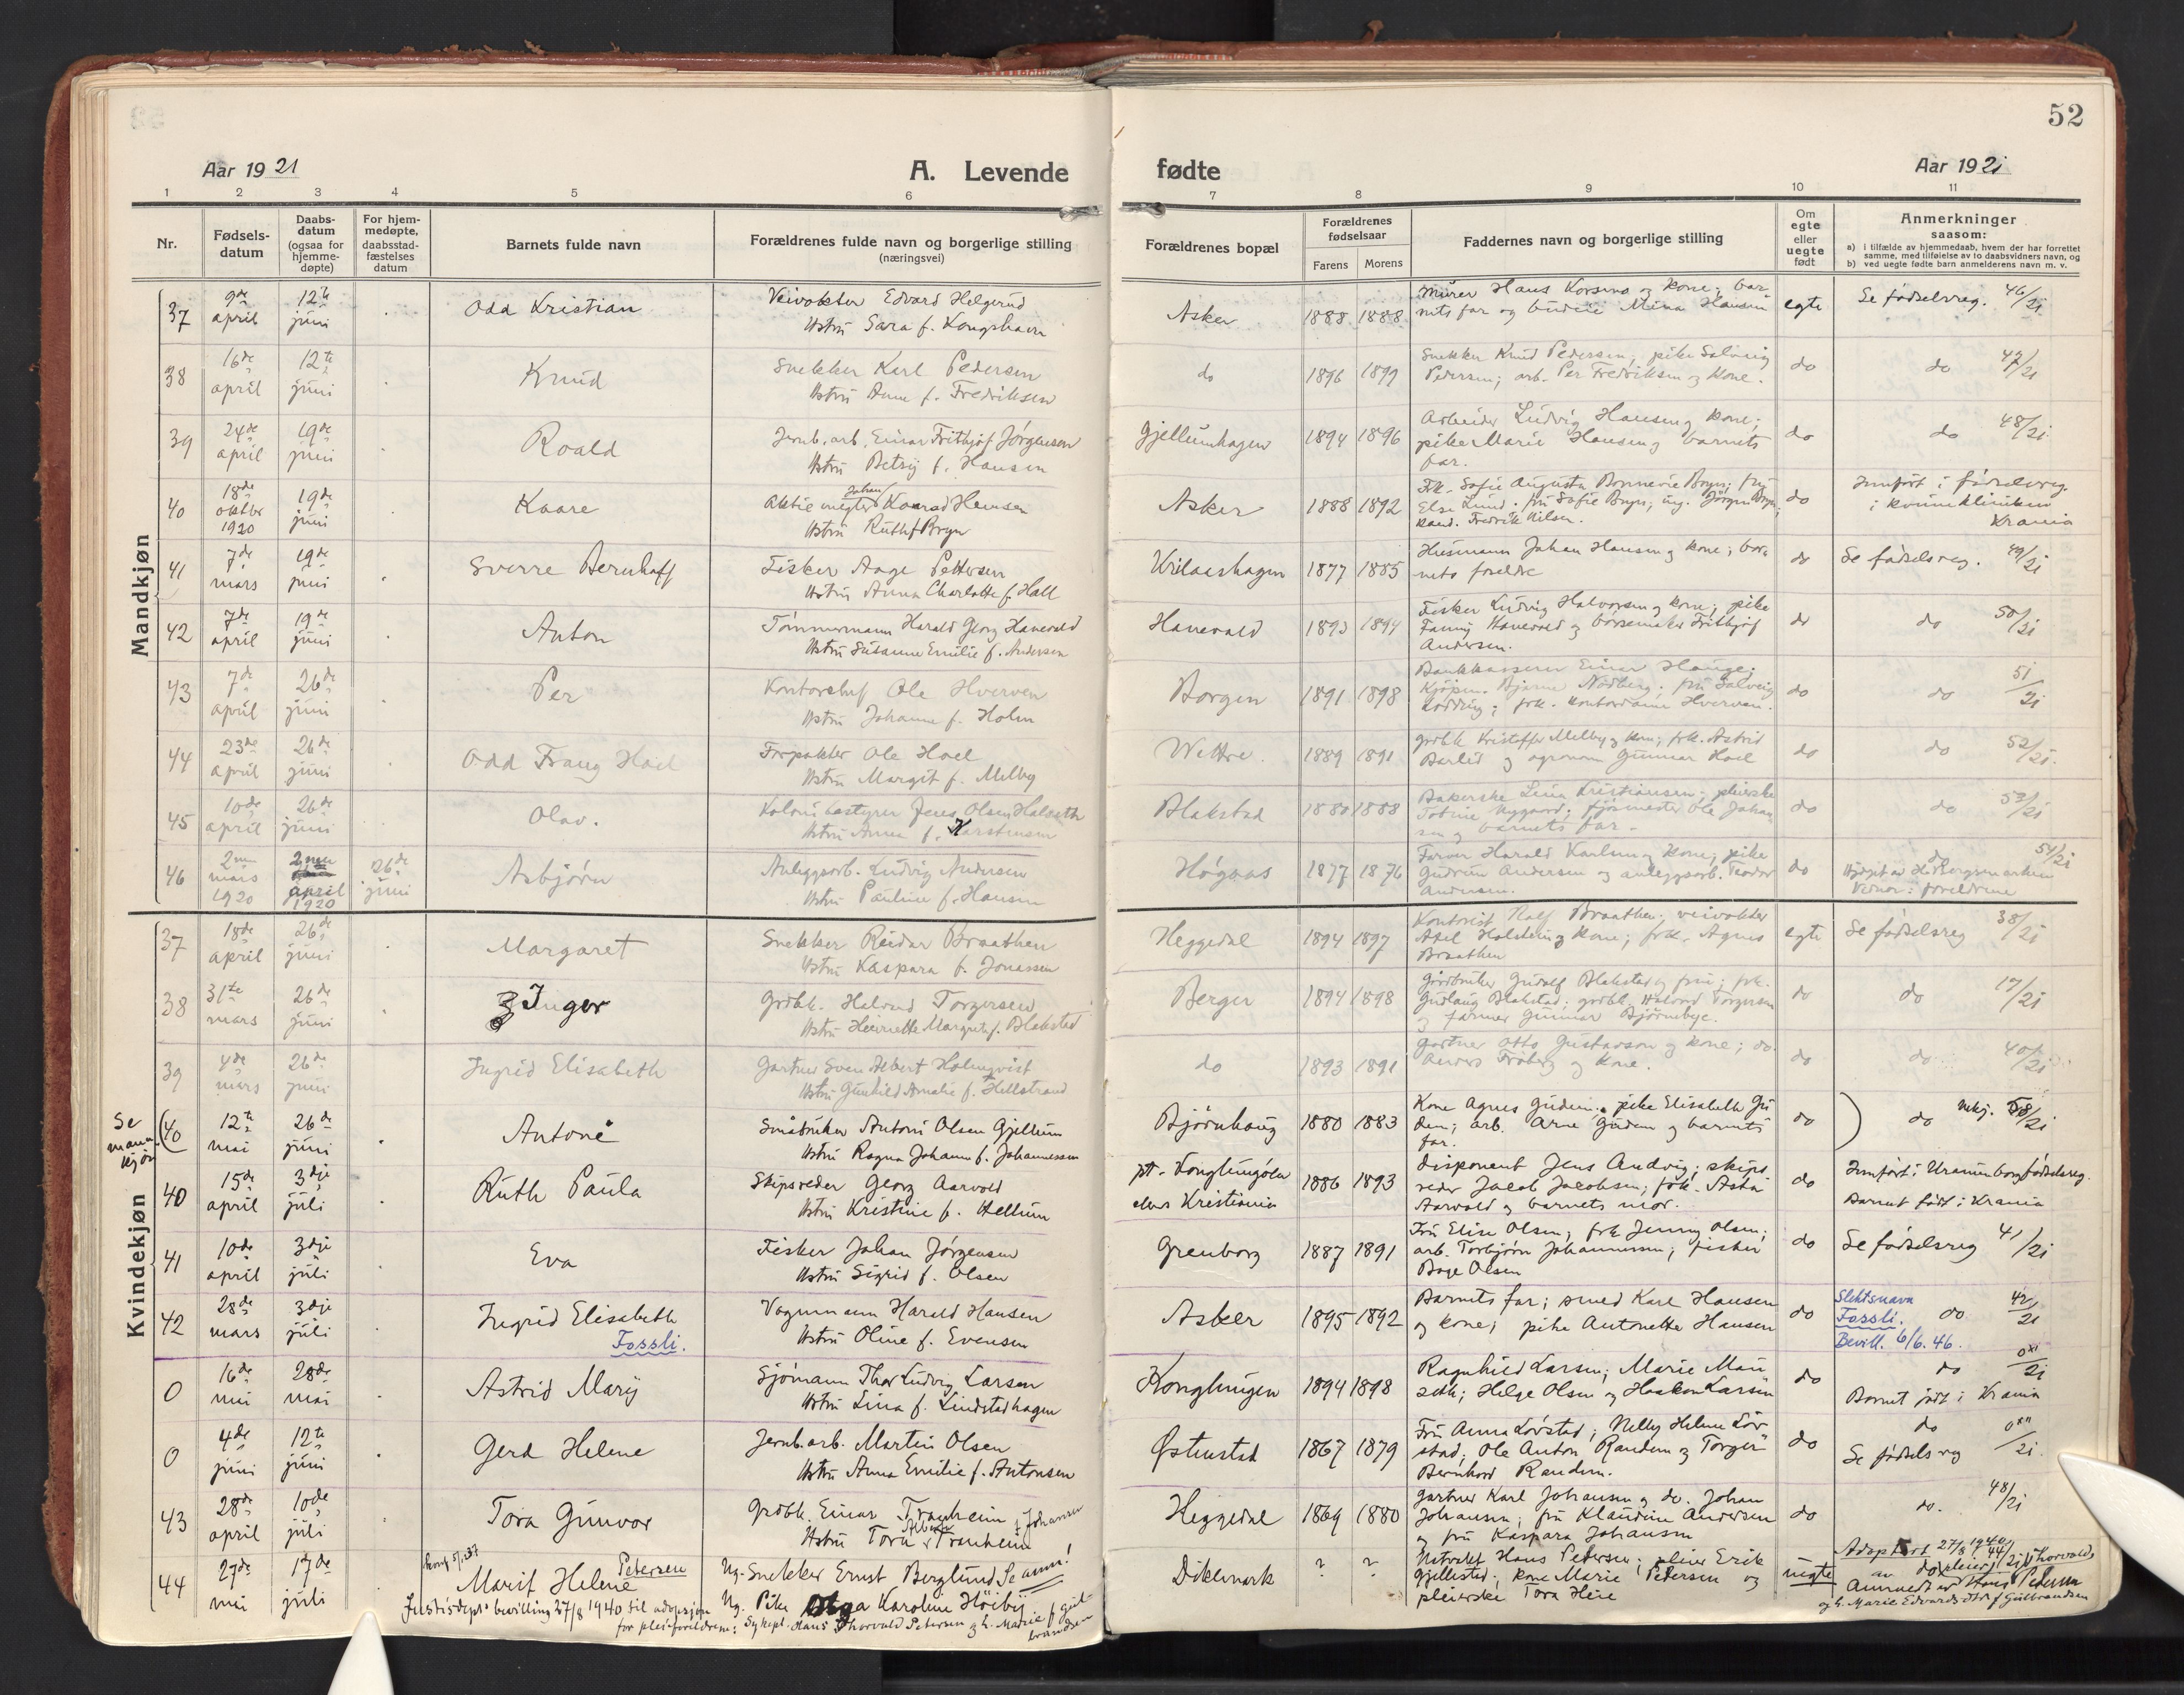 52
Aar 1921
A. Levende
fødte
Aar 1921
1 2 3 4 5 6 7 8 9 10 11
Nr.
Fødsels-
datum
Daabs-
datum
(ogsaa for
hjemme-
døpte)
For hjem-
medøpte,
daabsstad-
fæstelses
datum
Barnets fulde navn
Forældrenes fulde navn og borgerlige stilling
(næringsvei)
Forældrenes bopæl
Forældrenes
fødselsaar
Farens Morens
Faddernes navn og borgerlige stilling
Om
egte
eller
uegte
født
Anmerkninger
saasom:
a) i tilfælde av hjemmedaab, hvem der har forrettet
samme, med tilføielse av to daabsvidners navn, og
b) ved uegte fødte barn anmelderens navn m. v.
Mandkjøn
37 9de april 12te juni Odd Kristian
Veivokter Edvard Helgerud
Hstru Sara f. Kongshavn
Asker 1888 1888
Murer Hans og kone; bar-
nets far og budeie Mina Hansen
egte Se fødselsreg. 46/21
38 16de april 12te juni Knud
Snekker Karl Pedersen
Hstru Anna f. Fredriksen
do 1896 1899
Snekker Knud Pedersen; pike Solveig
Pedersen; arb. Per Fredriksen og kone.
do do 47/21
39 24de april 19de juni Roald
Jernb. arb. Einar Frithjof Jørgensen
Hstru Betsy f. Hansen
Gjellumhagen 1894 1896
Arbeider Ludvig Hansen og kone;
pike Marie Hansen og barnets
far.
do do 48/21
40 18de oktbr 1920 19de juni Kaare
Aktiemegler Johan Konrad Hemsen
Hstru Ruth f Bryn
Asker 1888 1892
Frk. Sofie Augusta Bonnevie Bryn; frk
Else Lund; fru Sofie Bryn; ing. Jørgen Bryn;
kand. Fredrik Nilsen.
do Innført i fødselsreg.
i kvinneklinikken
Krania
41 7de mars 19de juni Sverre Bernhoff
Fisker Aage Pettersen
Hstru Anna Charlotte f. Hall
1877 1885
Husmann Johan Hansen og kone; bar-
nets foreldre
do Se fødselsreg. 49/21
42 7de april 19de juni Anton
Tømmermann Harald Georg Hanevold
Hstru Susanne Emilie f. Andersen
Hanevold 1893 1894
Fisker Ludvig Halvorsen og kone; pike
Fanny Hanevold og børsemaker Frithjof
Andersen.
do do 50/21
43 7de april 26de juni Per
Kontorchef Ole Hverven
Hstru Johanne f. Holm
Borgen 1891 1898
Bankkasserer Einar Hauge;
Kjøpm. Bjarne Nordberg; fru Solveig
frk. kontordame Hverven.
do do 51/21
44 23de april 26de juni Odd Frang Hoel
Forpakter Ole Hoel
Hstru Margit f. Melby
Wettre. 1889 1891
grdbk Kristoffer Melby og kone; frk. Astrid
Barlid og agronom Gunnar Hoel
do do 52/21.
45 10de april 26de juni Olav.
Kolonibestyrer Jens Olsen
Hstru Anna f. Karstensen
Blakstad 1880 1888
Bakerske Lina Kristiansen; pleierske
Nygaard; fjøsmester Ole Johan-
sen og barnets far.
do do 53/21
46 2nen mars 1920 2nen april 1920 26de juni Asbjørn
Anleggsarb. Ludvig Andersen
Hstru Pauline f. Hansen
Høgaas 1877 1876
Farver Harald Karlsen og kone; pike
Gudrun Andersen og anleggsarb. Teodor
Andersen.
do do 54/21
Vidner: foreldrene
Kvindekjøn
37 18de april 26de juni Margaret
Snekker Reidar Braathen
Hstru Kaspara f. Jonassen
Heggedal 1894 1897
Kontorist Rolf Braathen; veivokter
Axel Holstein og kone; frk. Agnes
Braathen
egte Se fødselsreg 38/21
38 31te mars 26de juni Inger
Grdbk. Halvard Torgersen
Hstru Henriette Margrete f. Blakstad
Berger 1894 1898
Gårdbruker Gudolf Blakstad og fru; frk.
Gudlaug Blakstad; grdbk. Halvard Torgersen
og farmer Gunnar Bjørnebye.
do do 17/21
39 4de mars 26de juni Ingrid Elisabeth
Gartner Sven Albert Holmqvist
Hstru Gunhild Amalie f. Hellstrand
do 1893 1891
Gartner Otto Gustavson og kone; do.
Anders Frøberg og kone.
do do 40/21
Se
mann
kjøn
40 12te mai 26de juni Antone
Småbruker Antoni Olsen Gjellum
Hstru Ragna Johanne f. Johannessen
Bjørnhaug 1880 1883
Kone Agnes Gudem; pike Elisabeth Gu-
dem; arb. Arne Gudem og barnets
far.
do do 58/21
40 15de april 3dje juli Ruth Paula
Skipsreder Georg Aarvold
Hstru Kristine f. Hellum
pt.
ellers Kristiania 1886 1893
Disponent Jens Andvig; skips-
reder Jacob Jacobsen; frk. Asta
Aarvold og barnets mor.
do Innført i Uranienborg fødselsreg.
Barnet født i Krania
41 10de april 3dje juli Eva
Fisker Johan Jørgensen
Hstru Sigrid f. Olsen
Grenborg 1887 1891
Fru Elise Olsen; frk Jenny Olsen;
arb. Torbjørn Johannessen; fisker
Olsen
do Se fødselsreg 41/21
42 28de mars 3dje juli Ingrid Elisabeth
Fossli.
Vognmann Harald Hansen
Hstru Oline f. Evensen
Asker 1895 1892
Barnets far; smed Karl Hansen
og kone; pike Antonette Hansen
do Slektsnavn
Fossli. do 42/21
Bevill. 6/6.46.
0 16de mai 28de mai Astrid Mary
Sjømann Thor Ludvig Larsen
Hstru Lina f. Lindstadhagen
Konglungen 1894 1898
Ragnhild Larsen; Marie
Helge Olsen og Haakon Larsen
do do 0xi/21
Barnet født i Krania
0 4de juni 12te juni Gerd Helene
Jernb. arb. Martin Olsen
Hstru Anna Emilie f. Antonsen
Østenstad 1867 1879
Fru Anna Løvstad; Nelly Helene Løv-
stad; Ole Anton Randem og Torger
Bernhard Randem.
do do 0xii/21.
Se fødselsreg
43 28de april 10de juli Tora Gunvor
Grdbk. Einar Tranheim
Hstru Tora Tranheim f Johansen
Heggedal 1869 1880
Gartner Karl Johansen og do. Johan
Johansen; fru Klaudine Andersen
og fru Kaspara Johansen
do do. 48/21
44 27de mai 17de juli Marit Helene Petersen
Ug. Snekker Ernst Berglund Se anm!
Ug. Pike Olga Karoline Høiby
Dikemark ? ?
Hans Petersen; pleier Erik
Gjellestad; kone Marie Petersen og
pleierske Tora Heie
uegte
Adoptert 27/8 1940
Anmeldt av Hans Petersen
og h. Marie Edvardsdtr f Gulbrandsen
Justisdept bevilling 27/8 1940 til adopsjon
for pleieforeldrene: Sykepl. Hans Thorvald Petersen og h. Marie f Gul-
brandsen